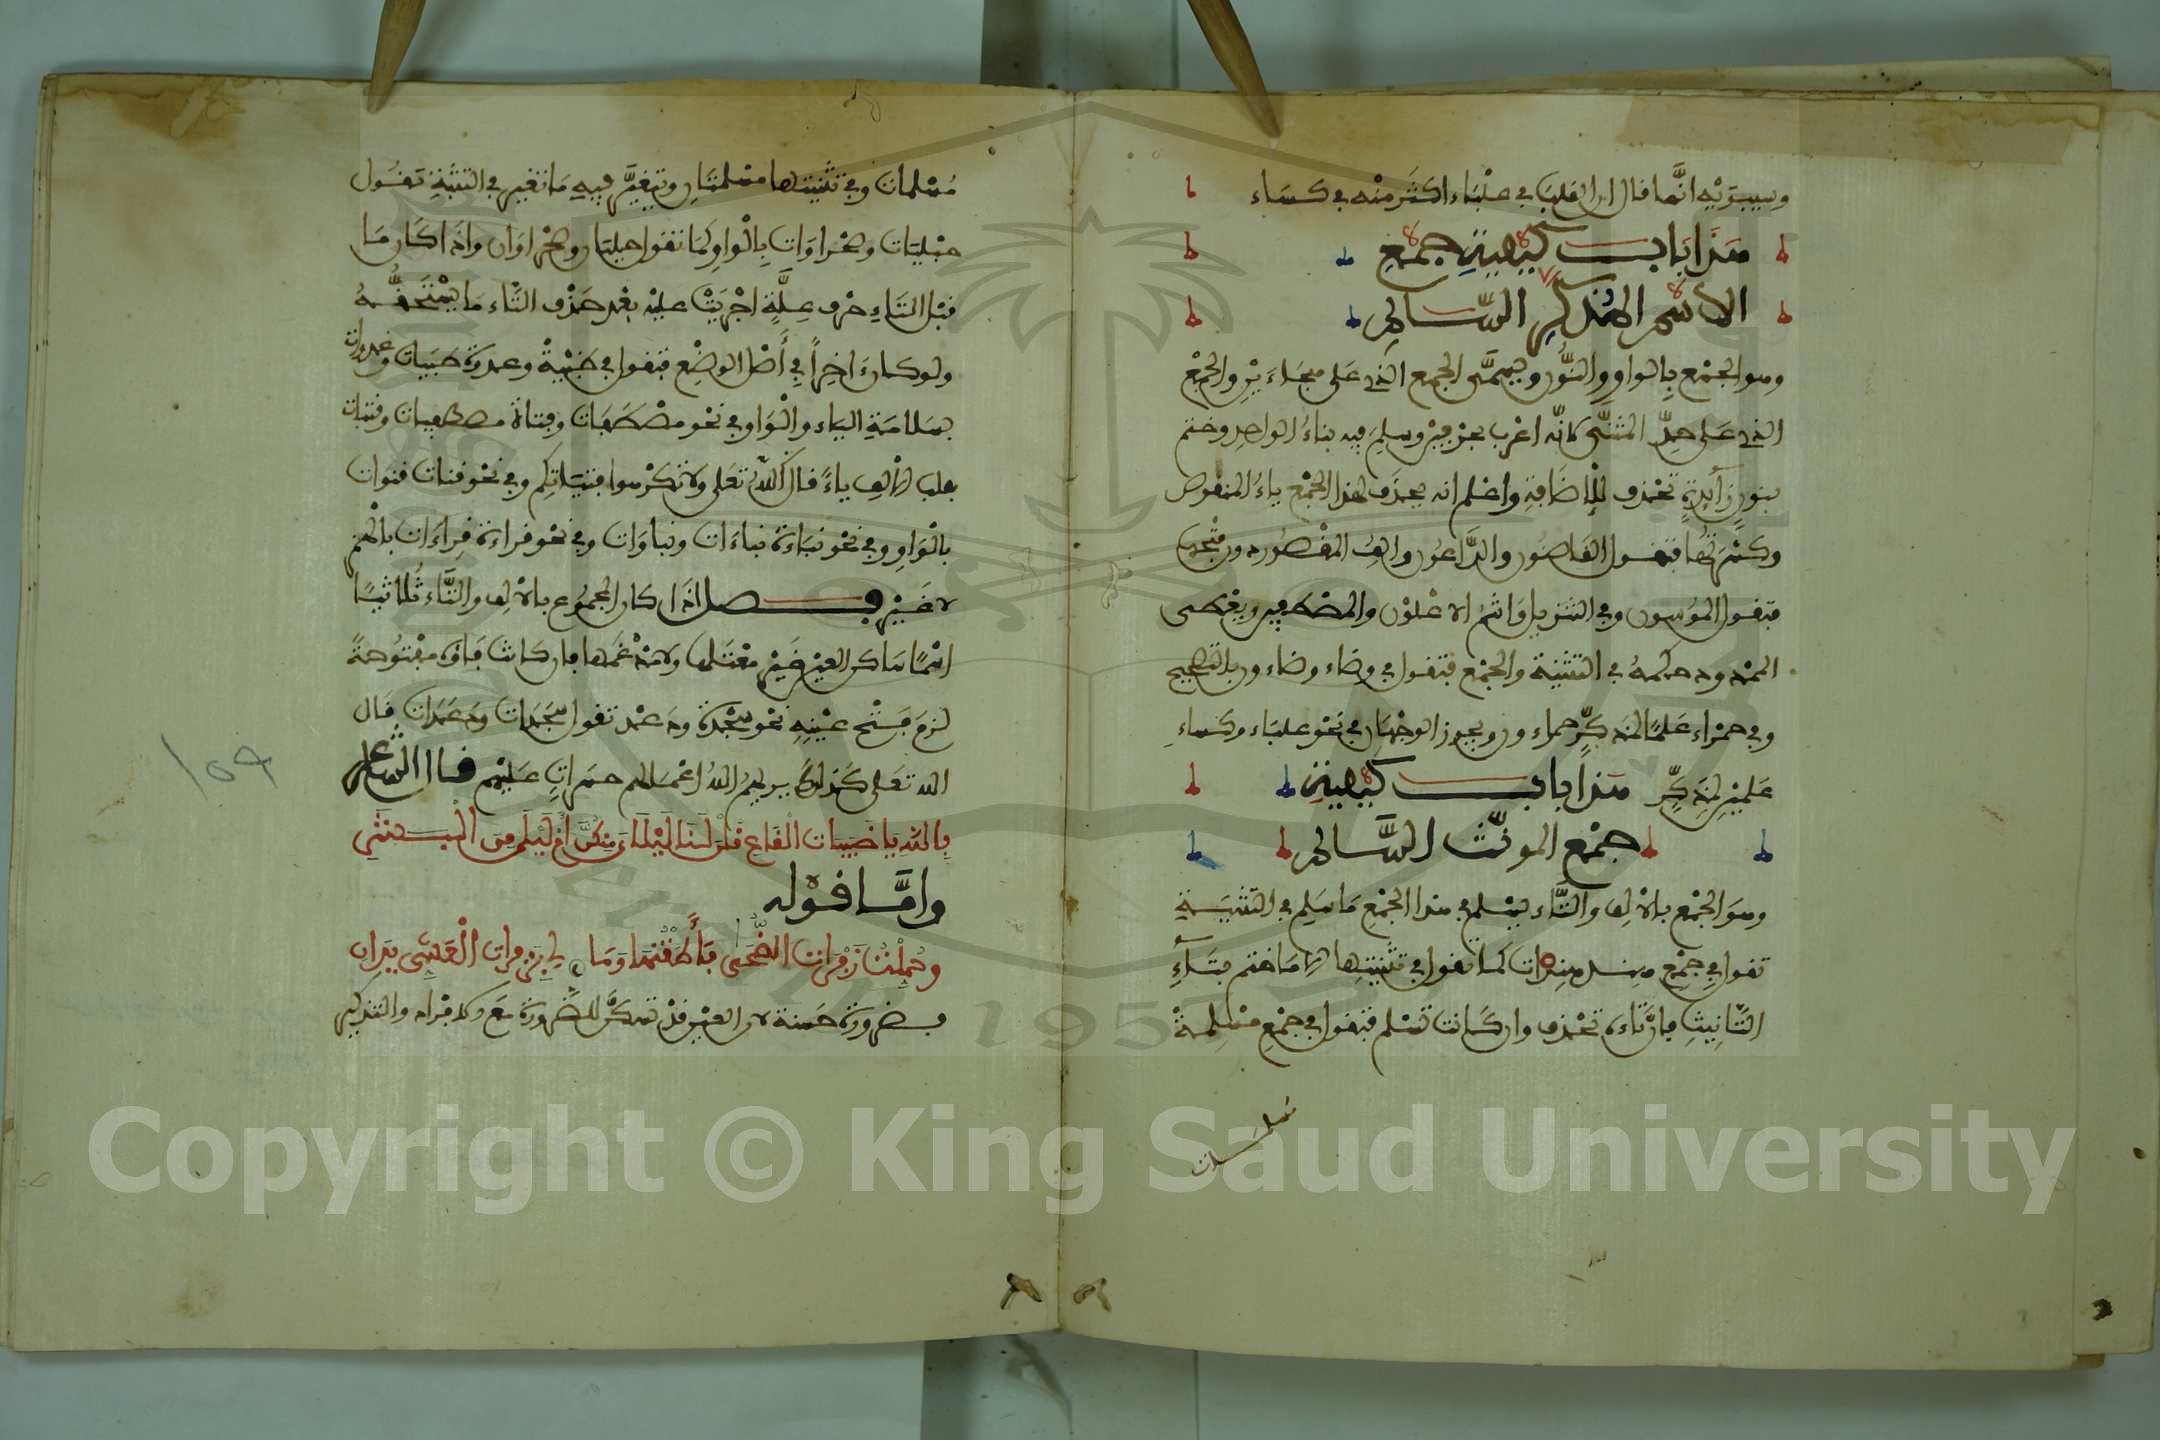 وسيبويه انما قال ان القلب في علباء اكثر منه في كساء
هذا باب كيفية جمع
الاسم المذكر السالم
وهو الجمع بالواو والنون ويسمى الجمع الذي على هجاءين والجمع
الذي على حد المثنى لانه اعرب بحرفين وسلم فيه بناء الواحد وختم
بنون زايدة تحذف للاضافة واعلم انه يحذف لهذا الجمع ياء المنقوص
وكسرتها فتقول القاضون والداعون والف المقصور دون فتحتها
فتقول الموسون وفي التنزيل وانتم الاعلون والمصطفين ويعطى
الممدود حكمه في التثنية والجمع فتقول في وضاء وضاءون بالتصحيح
وفي حمراء علما لمذكر حمراوون ويجوز الوجهان في نحو علباء وكساء
علمين لمذكر هذا باب كيفية
جمع المونث السالم
وهو الجمع بالالف والتاء يسلم في هذا الجمع ما سلم في التثنية
تقول في جمع هند هندات كما تقول في تثنيتها الا ما ختم بتاء
التانيث فان تاءه تحذف وان كانت تسلم فتقول في جمع مسلمة
مسلمات
مسلمات وفي تثنيتها مسلمتان ويتغير فيه ما تغير في التثنية تقول
حبليات وصحراوات بالواو كما تقول حبليان وصحراوان واذا كان ما
قبل التاء حرف علة اجريت عليه بعد حذف التاء ما يستحقه
ولو كان اخرا في اصل الوضع فتقول في ظبية وغدوة ظبيات وغدوات
بسلامة الياء والواو وفي نحو مصطفاة وفتاة مصطفيات وفتيات
بقلب الالف ياء قال الله تعلى ولا تكرهوا فتياتكم وفي نحو قناة قنوات
بالواو وفي نحو نباءة نباءات ونباوات وفي نحو قراءة قراءات بالهمز
لا غير فصل اذا كان المجموع بالالف والتاء ثلاثيا
اسما ساكن العين غير معتلها ولا مدغمها فان كانت فاوه مفتوحة
لزم فتح عينه نحو سجدة ودعد تقول سجدات ودعدات قال
الله تعلى كذلك يريهم الله اعملهم حسرات عليهم قال الشاعر
بالله يا ظبيات القاع قلن لنا ليلاي منكن ام ليلى من البشر
واما قوله
وحملت زفرات الضحى فأطقتها وما لي بزفرات العشي يدان
فضرورة حسنة لان العين قد تسكن للضرورة مع الافراد والتذكير
١٥٩